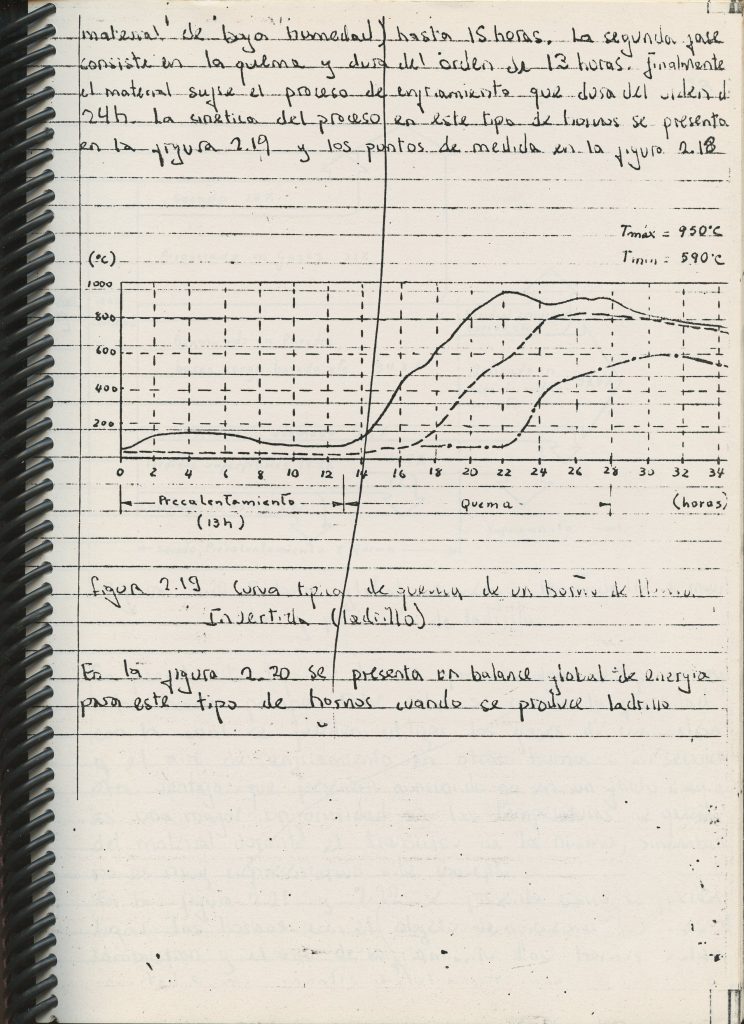 material de baja humedad) hasta 15 horas. La segunda fase
consiste en la quema y dura del orden de 13 horas. Finalmente
el material sufre el proceso de enfriamiento que dura del orden d
24h. La cinética del proceso en este tipo de hornos se presenta
en la figura 2.19 y los puntos de medida en la figura 2.18
Tmáx = 950°C
Tmin = 590°C
(°C)
1000
800
600
400
200
0 2 4 6 8 10 12 14 16 18 20 22 24 26 28 30 32 34
Precalentamiento Quema (horas)
(13h)
Figura 2.19 Curva tipica de quema de un horno de llama
Invertida (ladrillo)
En la figura 2.20 se presenta un balance global de energia
para este tipo de hornos cuando se produce ladrillo